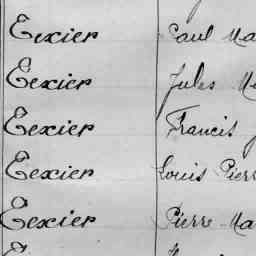 Texier Paul Ma
Texier Jules
Texier Francis
Texier Louis Pierr
Texier Pierre-Ma